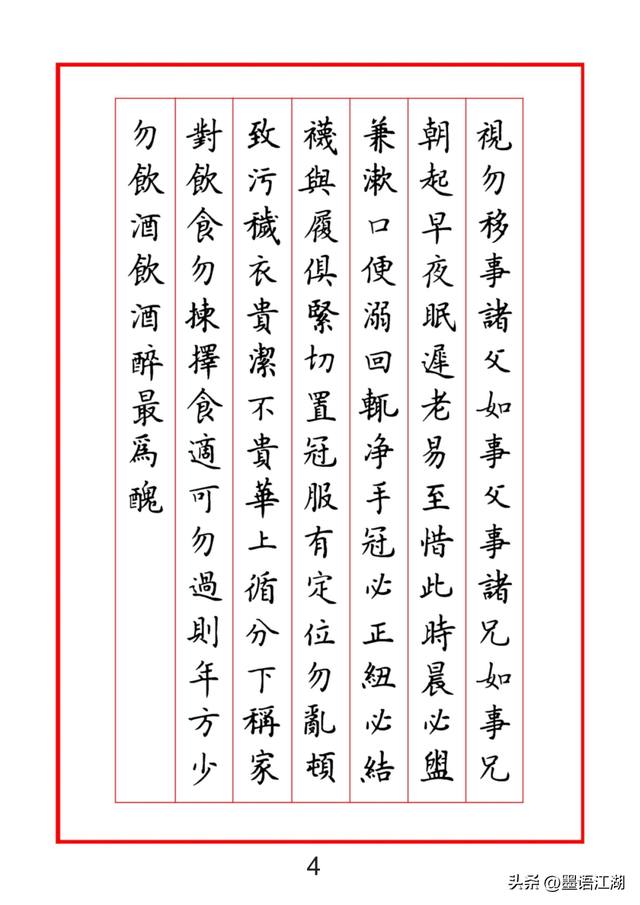 視勿移事諸父如事父事諸兄如事兄
朝起早夜眠遲老易至惜此時晨必盥
兼漱口便溺回輒净手冠必正紐必結
襪與履俱緊切置冠服有定位勿亂頓
致污穢衣貴潔不貴華上循分下稱家
對飲食勿揀擇食適可勿過則年方少
勿飲酒飲酒醉最爲醜
4
头条 @墨语江湖